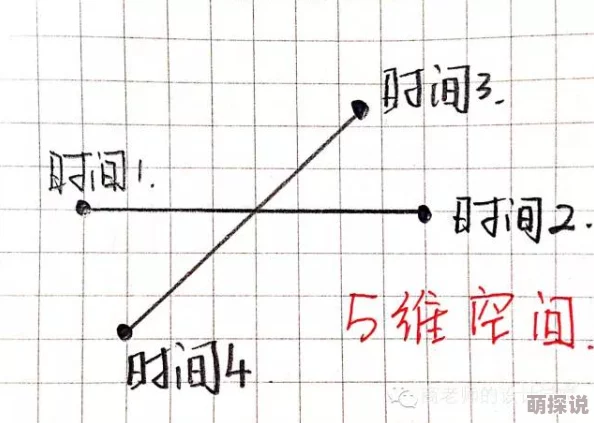 时间3.
时间1.
时间2.
5维空间.
时间4
萌探说